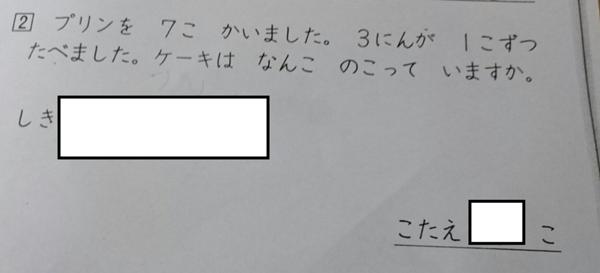 2 プリンを 7こ かいました。 3にんが 1こずつ
たべました。ケーキは なんこ のこって いますか。
しき
こたえ こ